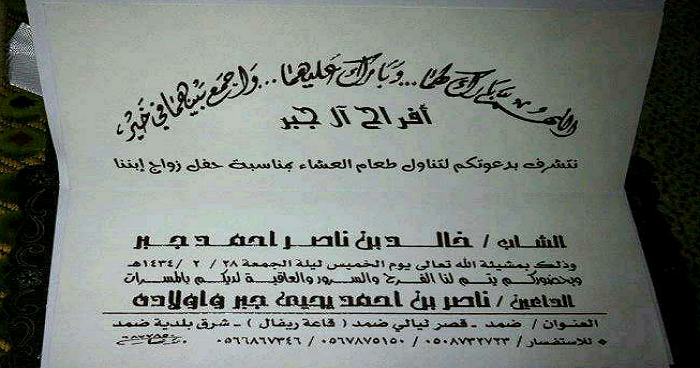 اللهم بارك لهما... وبارك عليهما... واجمع بينهما في خير
أفراح آل جبر
نتشرف بدعوتكم لتناول طعام العشاء بمناسبة حفل زواج إبننا
الشاب / خالد بن ناصر احمد جبر
وذلك بمشيئة الله تعالى يوم الخميس ليلة الجمعة ٢٨ / ٢ / ١٤٣٤هـ
وبحضوركم يتم لنا الفرح والسرور والعاقبة لديكم بالمسرات
الداعين / ناصر بن احمد يحيى جبر واولاده
العنوان / ضمد - قصر ليالي ضمد ( قاعة ريفال ) - شرق بلدية ضمد
للاستفسار / ٠٥٠٨٧٣٢٧٢٣ / ٠٥٦٧٨٧٥١٥٠ / ٠٥٦٦٨٦٧٣٤٦